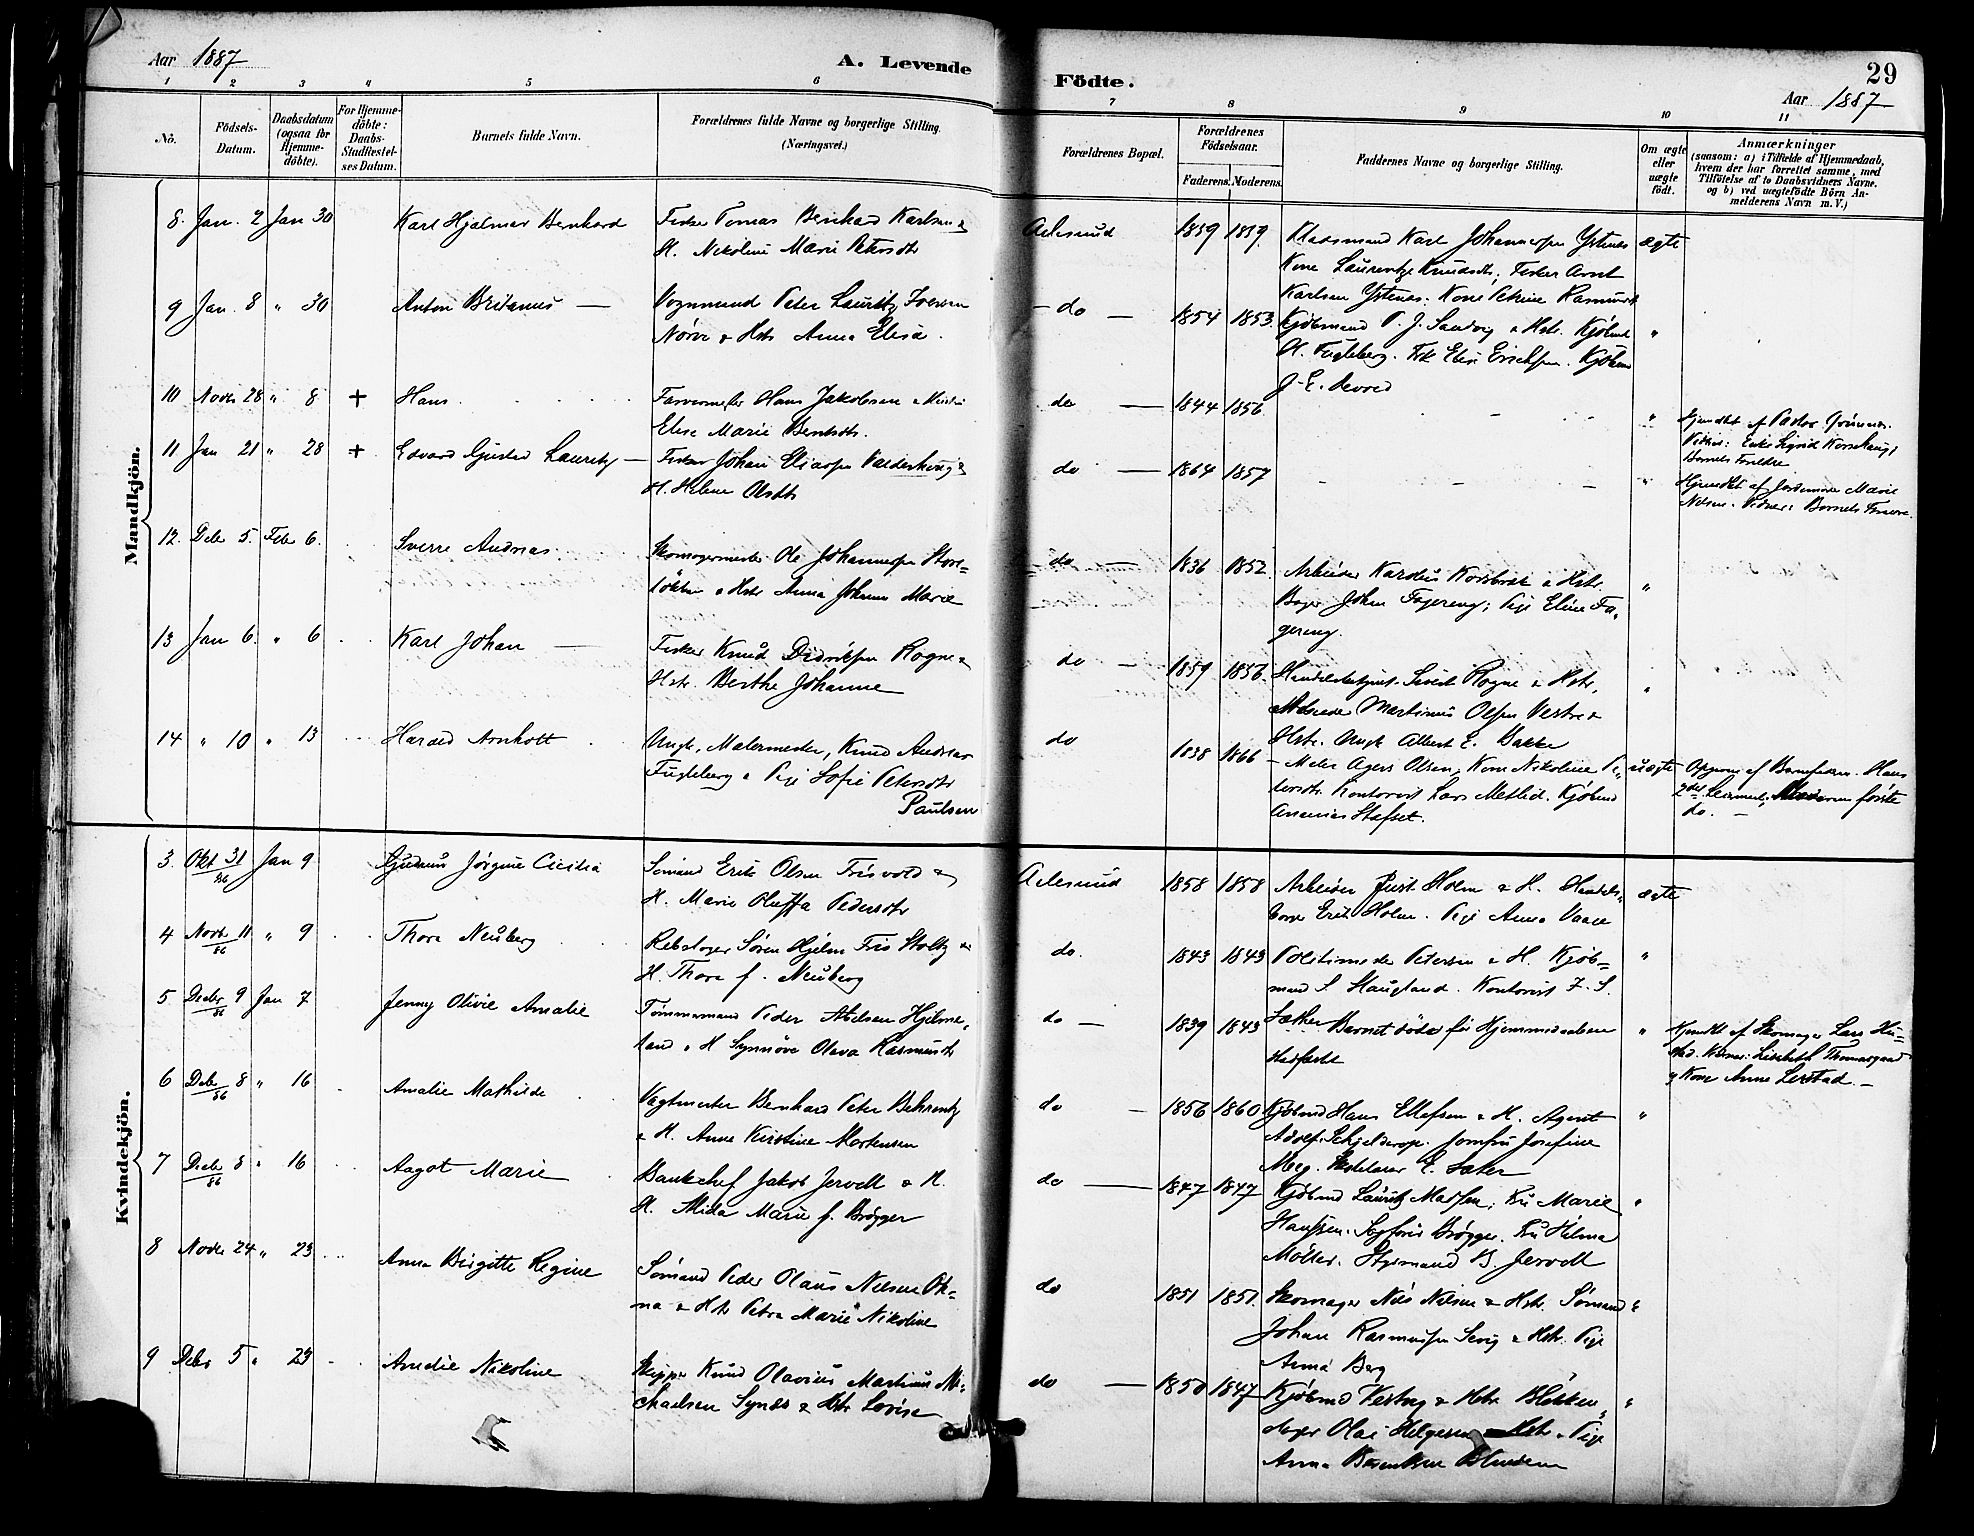 Aar 1887
A. Levende
Födte.
29
Aar 1887
1 2 3 4 5 6
7 8 9 10 11
No.
Födsels-Datum.
Daabsdatum (ogsaa for Hjemme-döbte).
For Hjemme-döbte: Daabs-Stadfæstel-ses Datum.
Barnets fulde Navn.
Forældrenes fulde Navne og borgerlige Stilling.
(Næringsvei.)
Forældrenes Bopæl.
Forældrenes Födselsaar.
Faderens. Moderens.
Faddernes Navne og borgerlige Stilling.
Om ægte eller uægte födt.
Anmærkninger
(saasom: a) i Tilfælde af Hjemmedaab,
hvem der har forrettet samme, med
Tilföielse af to Daabsvidners Navne.
og b) ved uægtefödte Börn An-
melderens Navn m. V.)
Mandkjön.
8. Jan. 2 Jan 30 Karl Hjalmar Bernhard Fisker Tomas Bernhard Karlsen &
H. Nikoline Marie Petersdtr
Aalesund 1859 1859. Karl Johannesen Ystenes ægte
Kone Laurentze Knudsdtr. Fisker Arnt
Karlsen Ystenes. Kone Petrine Rasmusd
9 Jan. 8 " 30 Anton Britanus — Vognmand Peter Lauritz Iversen
Nörve & Hstr Anna Elisa.
do — 1854 1853. Kjöbmand P. J. Sandvig & Hstr. Kjöbmd
O. Fugleberg. Frk Elise Erichsen. Kjöbmd
J. E. Devold
"
10 Novbr 28 " 8 + Hans Farvermester Hans Jakobsen & Hustru
Elise Marie Berntsdtr.
do — 1844 1856 "
Hjemdbt af Pastor
Vidner: Enke Sigrid Korshaug,
Barnets Forældre
11 Jan 21 " 28 + Edvard Gustav Lauritz — Fisker Johan Eliasen Valderhaug &
H. Helene Olsdtr
do — 1864 1857 "
Hjemdbt af Jordemoder Marie
Nilsen. Vidner: Barnets Forældre.
12. Debr 5. Febr 6. Sverre Andreas Skomagermester Ole Johannesen Store-
lökken & Hstr Anna Johanne Marie
do — 1836 1852. Arbeider Karolus Korsbrek & Hstr.
Bager Johan Fagereng; Pige Eline Fa-
gereng.
"
13 Jan 6. " 6 Karl Johan — Fisker Knud Didriksen Rogne &
Hstr. Berthe Johanne
do — 1859 1856. Handelsbetjent Sivert Rogne & Hstr.
Arbeider Martinus Olsen Vestre &
Hstr. Ungk Albert E. Bakke
"
14 " 10 " 13 Harald Arnholt Ungk., Malermester, Knud Andreas
Fugleberg & Pige Sofie Petersdtr
Paulsen
do 1838 1866 — Maler Agers Olsen; Kone Nikoline Pe-
tersdtr. Kontorist Lars Metlid. Kjöbmd
Ananias Stafset.
uægte Opgivne af Barnefaderen. Hans
2det Leiermaal; Moderens förste
do. —
Kvindekjön.
3. Okt 31/86 Jan 9 Gudrun Jörgine Cicilia Sömand Erik Olsen Frisvold &
H. Marie Oluffa Pedersdtr
Aalesund 1858 1858 Arbeider Just Holm & H. Handels-
borger Erik Holm. Pige Anna Vaage
ægte
4 Novbr 11/86 " 9 Thora Neuberg Rebslager Sören Hjelm Friis Stoltz &
H. Thora f. Neuberg
do. 1843 1843 Politimester Petersen & H. Kjöb-
mand S. Haugland. Kontorist Z. S.
Sæther
"
5 Decbr 9/86 Jan 7 Jenny Olivie Amalie Tömmermand Peder Abelsen Hjelme-
land & H Synnöve Olava Rasmusdtr
do — 1839 1843 Barnet döde för Hjemmedaaben
stadfæstet
" Hjemdbt af Skomager Lars
Vidner: Lisebeth Thomasgaard
og Kone Anne Lerstad. —
6 Debr 8/86 " 16 Amalie Mathilde Vagtmester Bernhard Peter Behrentz
& H. Anne Kirstine Mortensen
do — 1856 1860 Kjöbmd Hans Ellefsen & H. Agent
Adolf Schjelderup. Jomfru Josefine
Meg. Skolelærer E. Sæter
"
7 Decbr 8/86 " 16 Aagot Marie Bankchef Jakob Jervell & H.
H. Mida Marie f. Brögger
do — 1847 1847 Kjöbmd Lauritz Madsen; Fru Marie
Hanssen. Brögger. Fru Helma
Möller. Styrmand B. Jervell
"
8 Novbr 24 " 23 Anna Birgitte Regine Sömand Peder Olaus Nilsen Ok-
na & Hstr Petra Marie Nikoline
do 1851 1851. Skomager Nils Nilsen & Hstr. Sömand
Johan Rasmussen Sevig & Hstr. Pige
Anna Berg
"
9 Debr 5 " 23 Amalie Nikoline Skipper Knud Olavius Martinus Mi-
chaelsen Synes & Hstr Lovise
do — 1850 1847 Kjöbmd Vestrey & Hstr Blikken-
slager Olai Helgesen & Hstr. Pige
Anna Berntsen Blindem
"